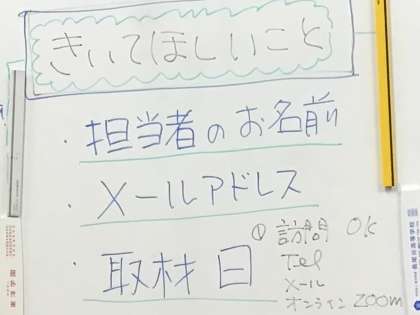 きいてほしいこと
・担当者のお名前
・メールアドレス
・取材日
①訪問 OK
Tel
メール
オンライン ZOOM